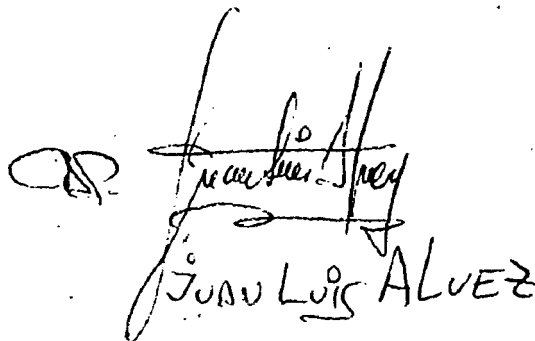 Juan Luis Alvez
JUAN LUIS ALVEZ